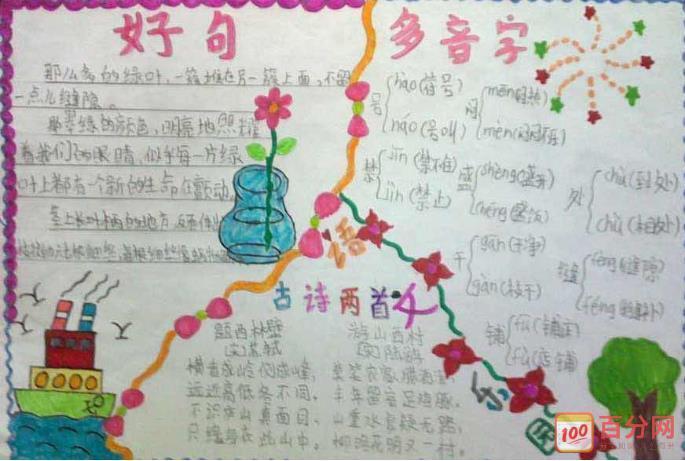 好句
那么多的绿叶，一簇堆在另一簇上面，不留
一点儿缝隙。
那翠绿的颜色，明亮地照耀
着我们的眼睛，似乎每一片绿
叶上都有一个新的生命在颤动。
茎上长叶柄的地方，反面伸出
多音字
号
hào(符号)
háo(号叫)
闷
mēn(闷热)
mèn(闷闷不乐)
禁
jīn(禁不住)
jìn(禁止)
盛
shèng(盛开)
chéng(盛饭)
处
chù(到处)
chǔ(相处)
干
gān(干净)
gàn(枝干)
缝
fèng(缝隙)
féng(缝补)
铺
语
古诗两首
题西林壁
(宋)苏轼
横看成岭侧成峰，
远近高低各不同。
不识庐山真面目，
只缘身在此山中。
游山西村
(宋)陆游
丰年留客足鸡豚。
山重水复疑无路，
柳暗花明又一村。
园
100
百分网